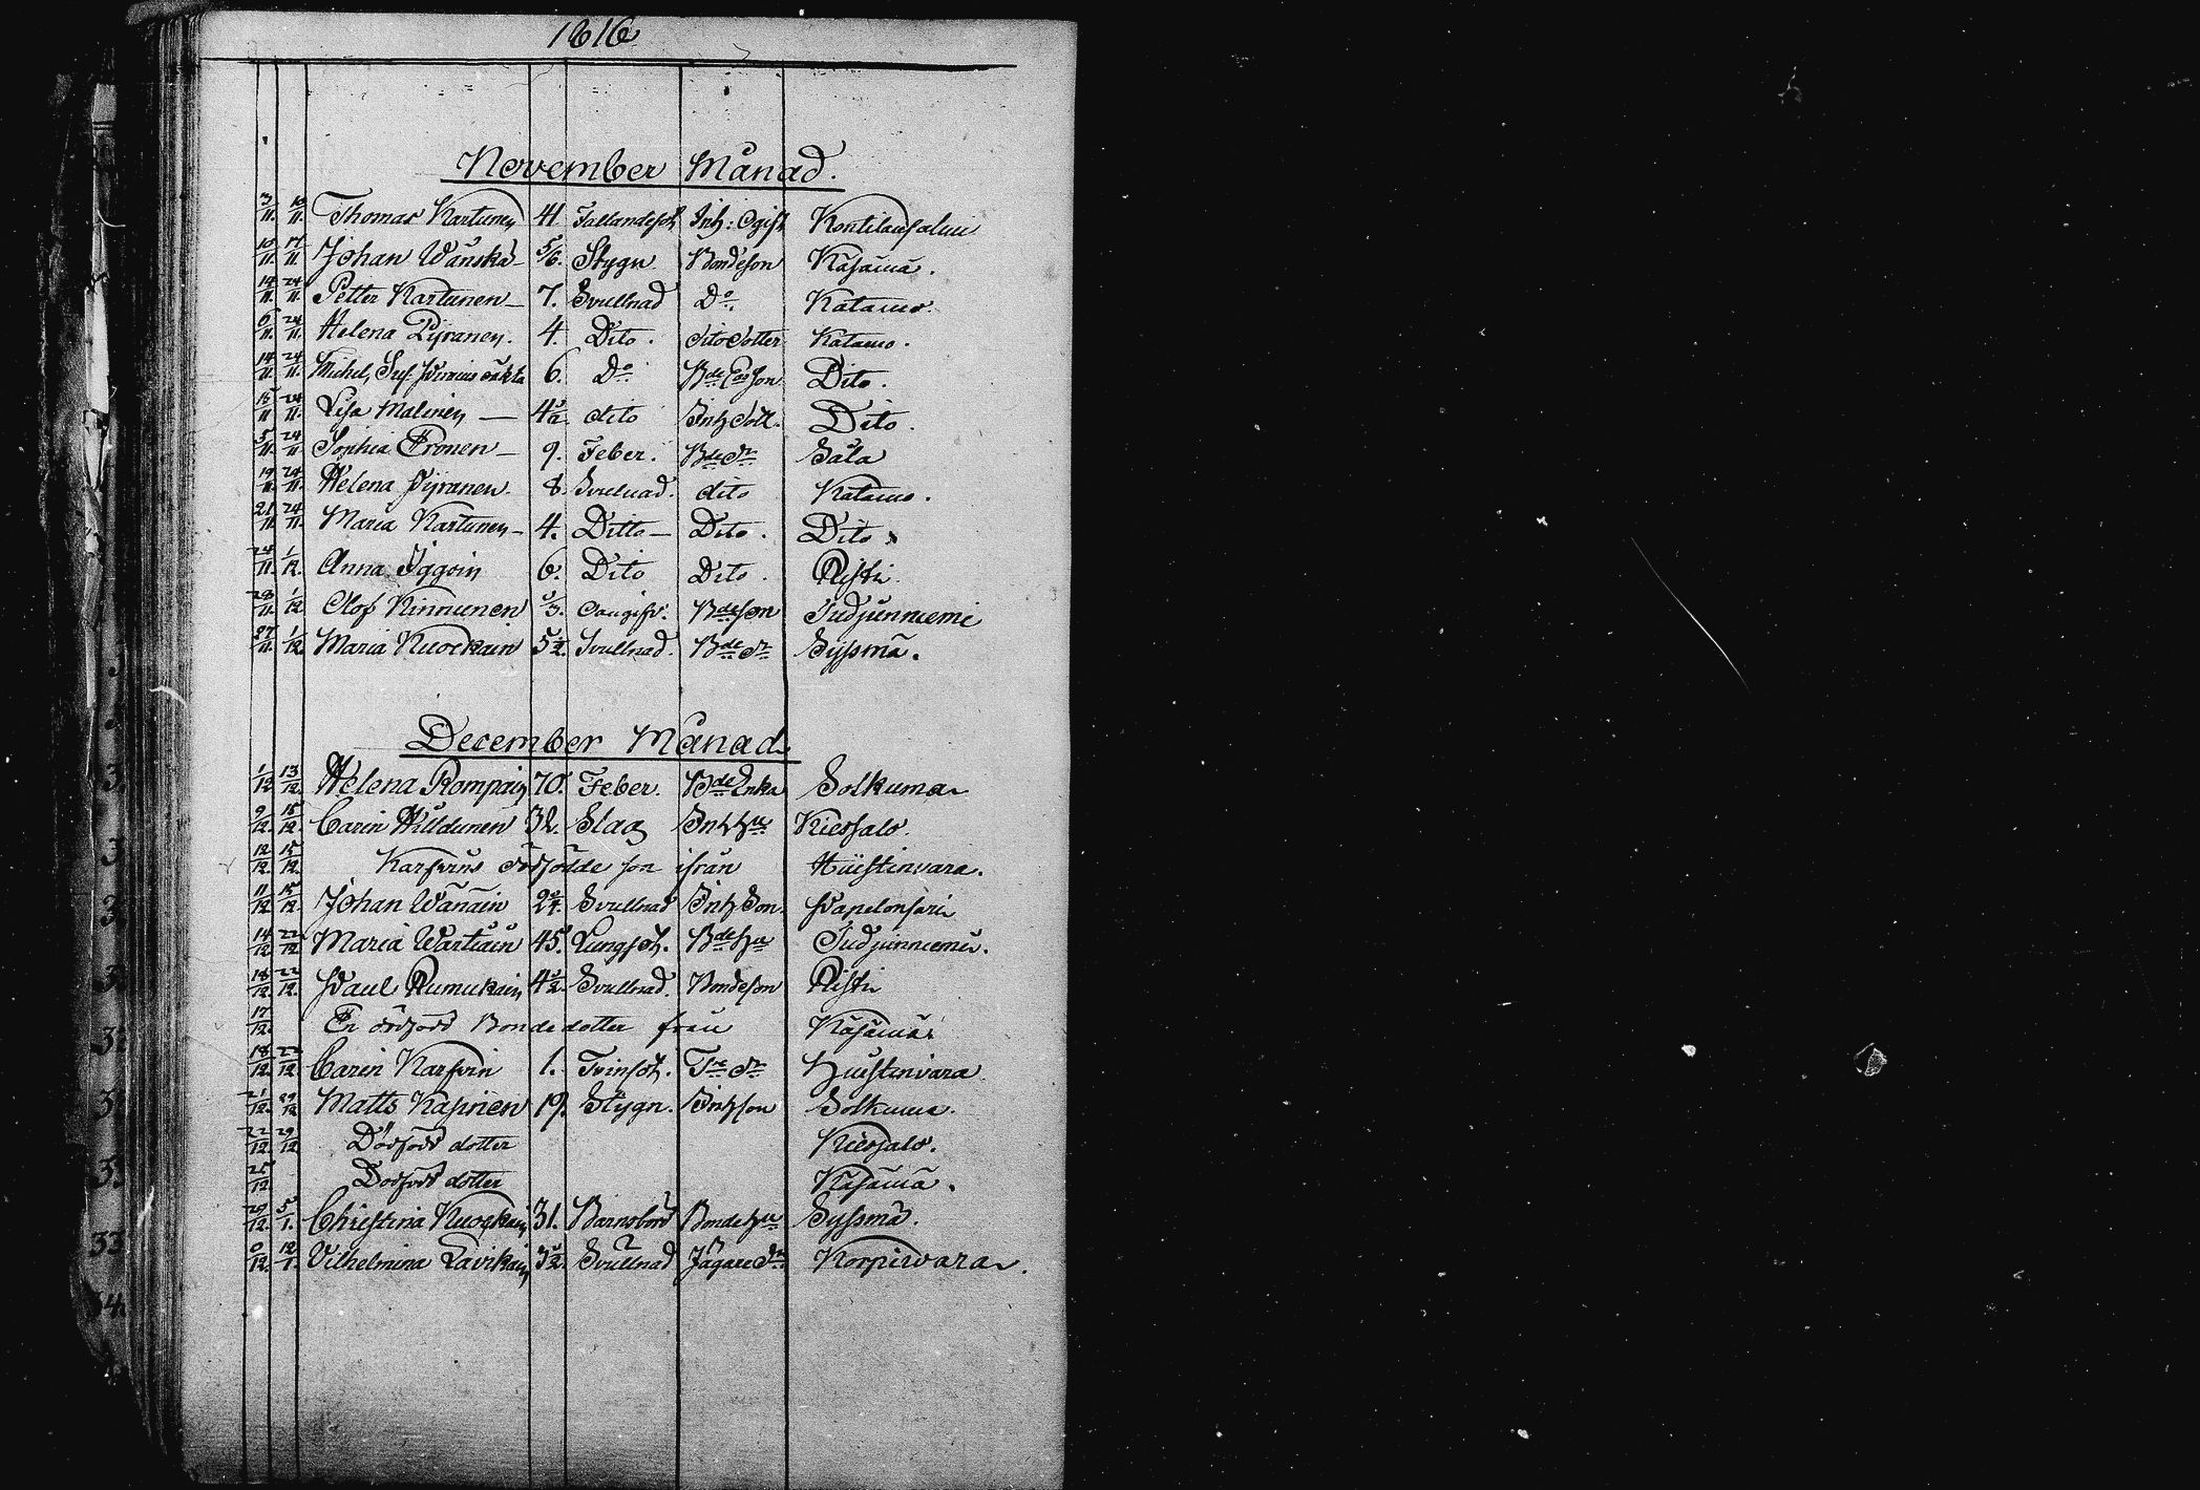 1816
November Månad.
3/11. 10/11. Thomas Kartunen 41 Fallandesot Inh: Ogift Kontilansalmi
10/11. 17/11 Johan Wänskä 5/6. Stygn Bondeson Käsämä.
19/11. 24/11 Petter Kartunen 7. Svullnad Do Katamo.
6/11. 24/11. Helena Pyranen. 4. Dito. Dito Dotter Katamo.
14/11 24/11. Michel, 6. Do Bde son Dito.
15/11 24/11. Lisa Malinen 4 dito Inh Dott. Dito.
5/11. 24/11 Sophia Eronen 9. Feber. Bde Dr Säla
19/11. 24/11. Helena Pyranen. 8. Svulnad. dito Katamo.
21/11 24/11. Maria Kartunen 4. Ditto Dito. Dito
24/11. 1/12. Anna Iggoin 6. Dito Dito. Risti
28/11 1/12 Olof Kinnunen 1/3. Oangifv. Bde son Judjunniemi
27/11. 1/12. Maria Kuockain 5 1/2. Svullnad. Bde Dr Syssmä.
December Månad.
1/12 13/12. Helena Rompain 70. Feber. Bde Enka Solkuma
9/12. 15/12. Carin Hilldunen 32. Slag Inh Hu Kiessalo.
12/12. 15/12. Karfvins dödfödde son ifrån Huistinvara.
11/12 15/12. Johan Wänäin 2 Svullnad Inh Son. Papelonsari
14/12 22/12 Maria Wartiain 45. Lungsot. Bde Hu Judjunniemi.
18/12. 22/12. Paul Rumukain 4 1/2. Svullnad. Bondeson Risti
17/12. En dödfödd Bondedotter från Käsämä
18/12. 22/12. Carin Karfvin 1. Tvinsot. Dr Huistinvara
21/12. 29/12 Matts Kapinen 19. Stygn. Inhson Solkuma.
22/12 29/12 Dödfödd dotter Kiessalo.
25/12 Dödfödd dotter Käsämä.
29/12. 5/1. Christina Kuockain 31. Barnsbörd Bonde Hu Syssmä.
9/12. 12/1. Vilhelmina Lavikain 3 1/2. Svullnad Jägare Dr Korpiwara.